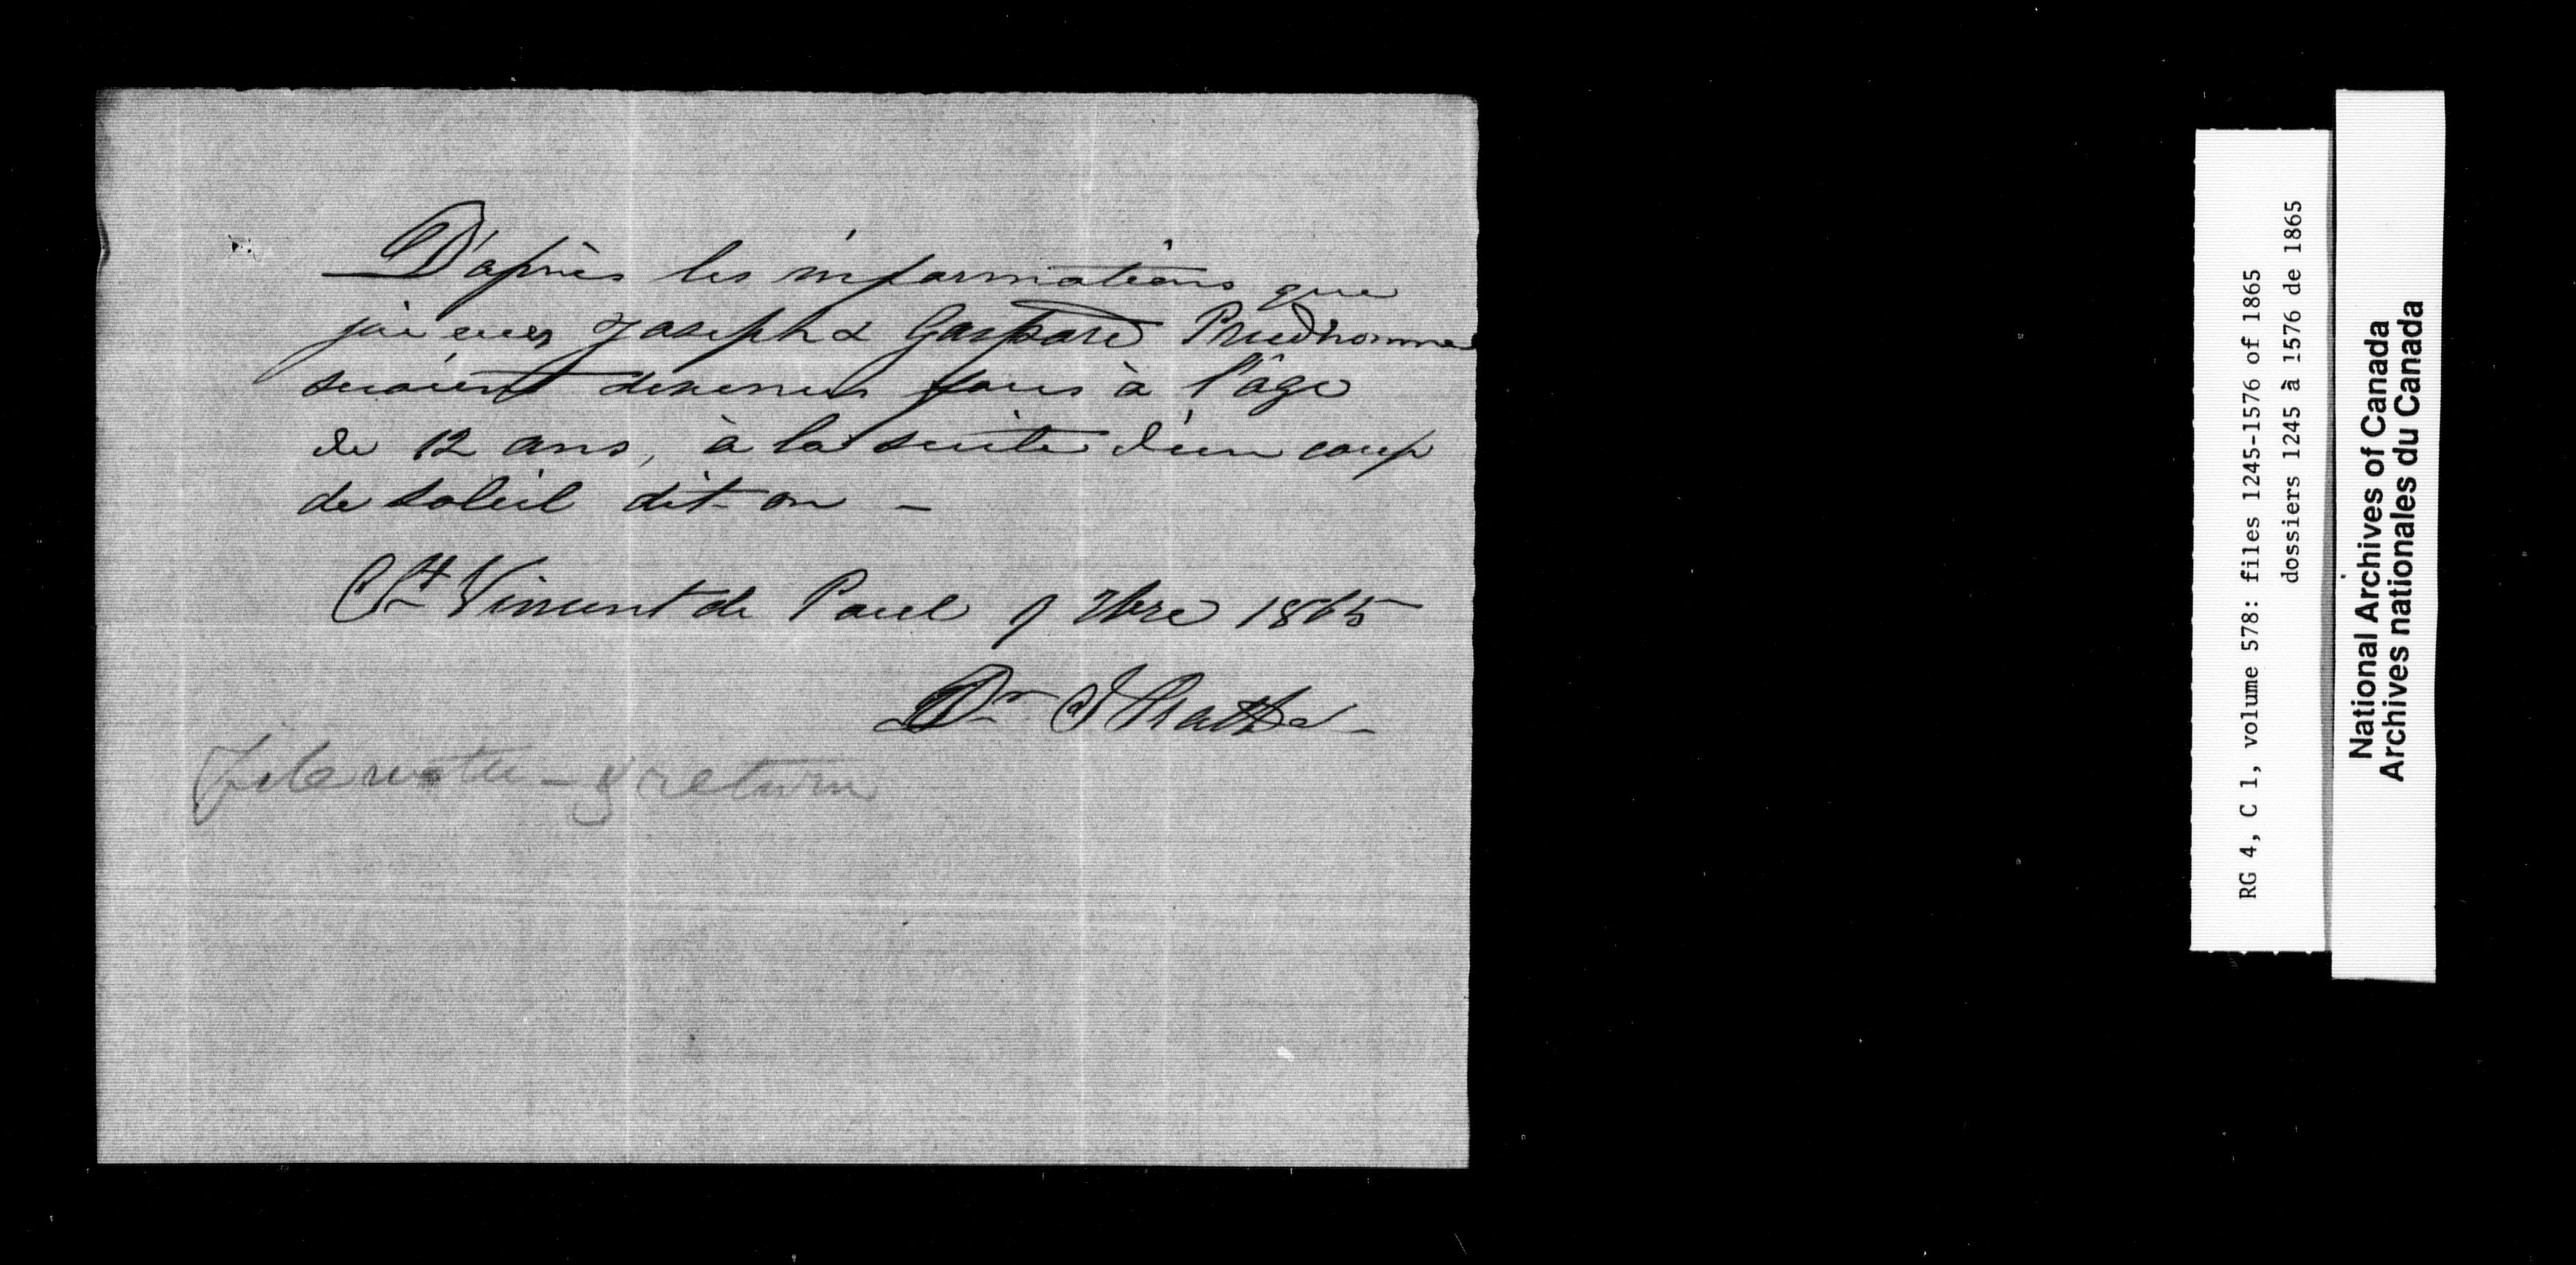 D'après les informations que
j'ai eues Joseph & Gaspard Prudhomme
seraient devenus fous à l'âge
de 12 ans, à la suite d'un coup
de soleil dit-on –
St Vincent de Paul 9 7bre 1865
Dr
File - & return
RG 4, C 1, volume 578: files 1245-1576 of 1865
dossiers 1245 à 1576 de 1865
National Archives of Canada
Archives nationales du Canada